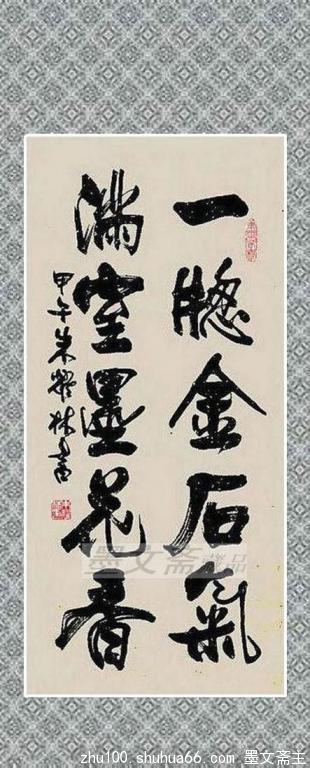 一牕金石氣
滿室墨花香
甲午朱 林書
墨文斋藏品
zhu100.shuhua66.com 墨文斋主